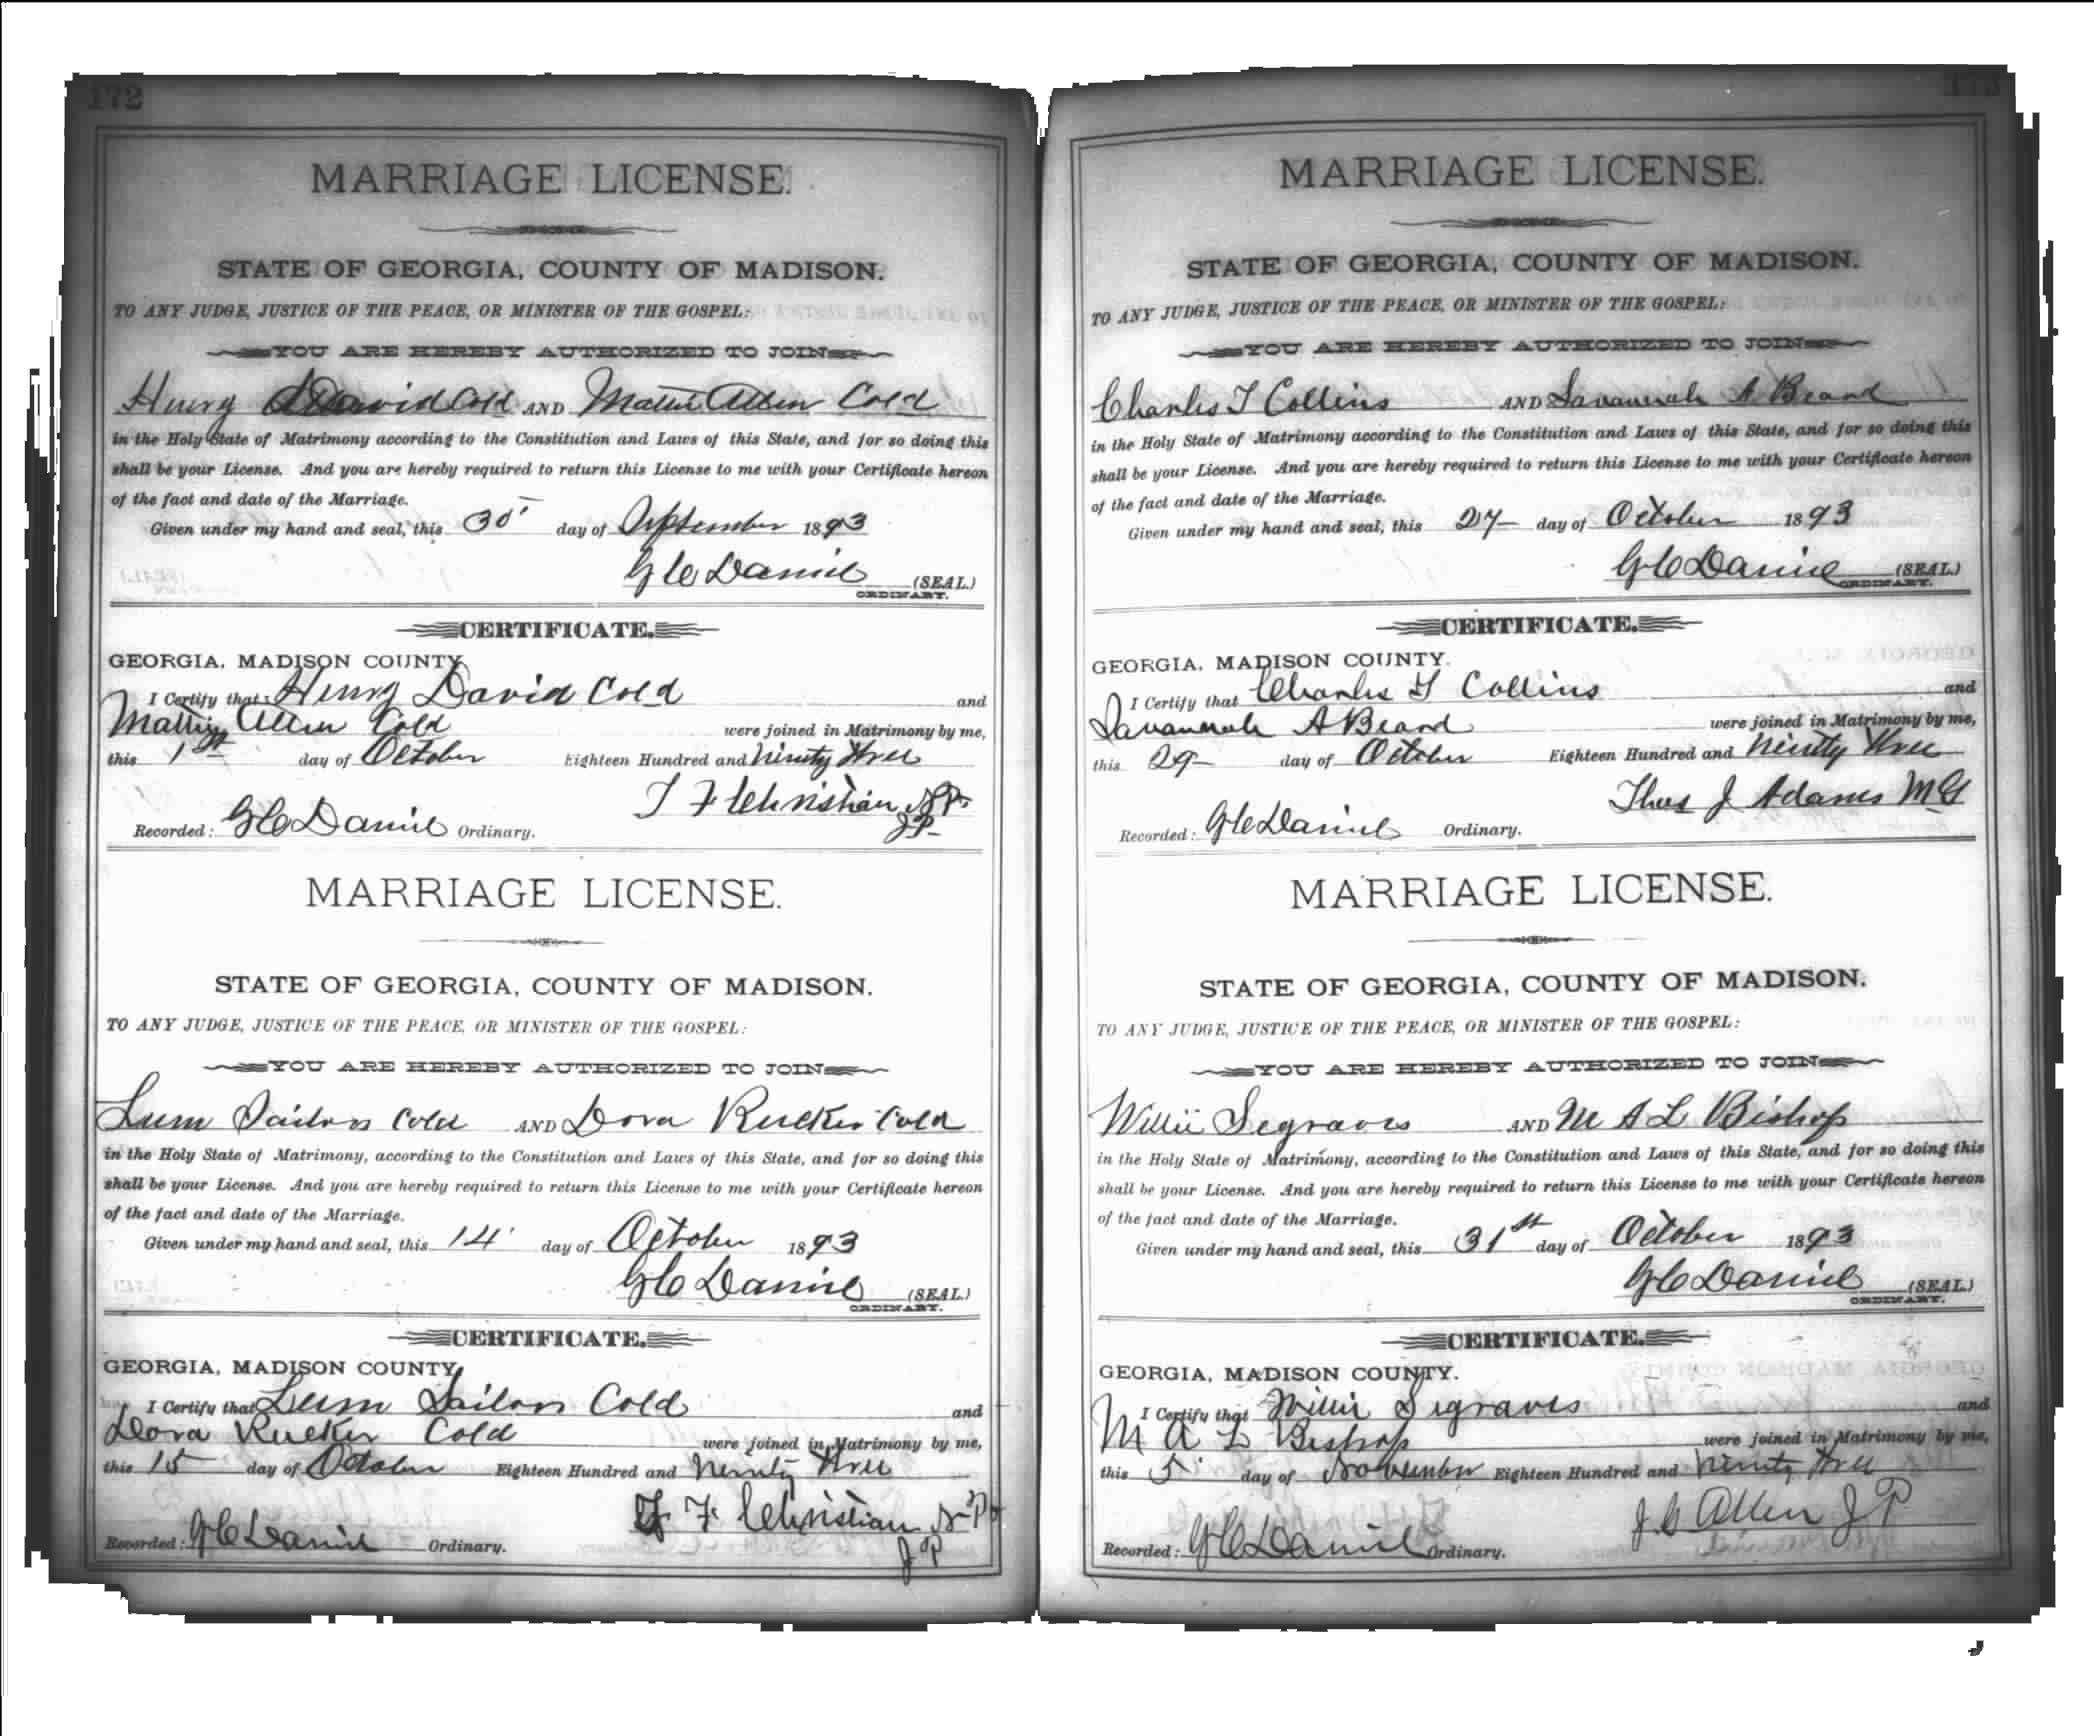 172
MARRIAGE LICENSE.
STATE OF GEORGIA, COUNTY OF MADISON.
TO ANY JUDGE, JUSTICE OF THE PEACE, OR MINISTER OF THE GOSPEL:
YOU ARE HEREBY AUTHORIZED TO JOIN
Henry David Cold AND Mattie Allen Cold
in the Holy State of Matrimony according to the Constitution and Laws of this State, and for so doing this
shall be your License. And you are hereby required to return this License to me with your Certificate hereon
of the fact and date of the Marriage.
Given under my hand and seal, this 30 day of September 1893
G C Daniel (SEAL.)
ORDINARY.
CERTIFICATE.
GEORGIA, MADISON COUNTY.
I Certify that Henry David Cold and
Mattie Allen Cold were joined in Matrimony by me,
this 1st day of October Eighteen Hundred and Ninety Three
T F Christian N P
J P
Recorded: G C Daniel Ordinary.
MARRIAGE LICENSE.
STATE OF GEORGIA, COUNTY OF MADISON.
TO ANY JUDGE, JUSTICE OF THE PEACE, OR MINISTER OF THE GOSPEL:
YOU ARE HEREBY AUTHORIZED TO JOIN
Lum Sailors Cold AND Dora Rucker Cold
in the Holy State of Matrimony, according to the Constitution and Laws of this State, and for so doing this
shall be your License. And you are hereby required to return this License to me with your Certificate hereon
of the fact and date of the Marriage.
Given under my hand and seal, this 14 day of October 1893
G C Daniel (SEAL.)
ORDINARY.
CERTIFICATE.
GEORGIA, MADISON COUNTY.
I Certify that Lum Sailors Cold and
Dora Rucker Cold were joined in Matrimony by me,
this 15 day of October Eighteen Hundred and Ninety Three
T F Christian N P
J P
Recorded: G C Daniel Ordinary.
173
MARRIAGE LICENSE.
STATE OF GEORGIA, COUNTY OF MADISON.
TO ANY JUDGE, JUSTICE OF THE PEACE, OR MINISTER OF THE GOSPEL:
YOU ARE HEREBY AUTHORIZED TO JOIN
Charles T Collins AND Savannah A Beard
in the Holy State of Matrimony according to the Constitution and Laws of this State, and for so doing this
shall be your License. And you are hereby required to return this License to me with your Certificate hereon
of the fact and date of the Marriage.
Given under my hand and seal, this 27 day of October 1893
G C Daniel (SEAL.)
ORDINARY.
CERTIFICATE.
GEORGIA, MADISON COUNTY.
I Certify that Charles T Collins and
Savannah A Beard were joined in Matrimony by me,
this 29 day of October Eighteen Hundred and Ninety Three
Thos J Adams M G
Recorded: G C Daniel Ordinary.
MARRIAGE LICENSE.
STATE OF GEORGIA, COUNTY OF MADISON.
TO ANY JUDGE, JUSTICE OF THE PEACE, OR MINISTER OF THE GOSPEL:
YOU ARE HEREBY AUTHORIZED TO JOIN
Willie Segraves AND M A L Bishop
in the Holy State of Matrimony, according to the Constitution and Laws of this State, and for so doing this
shall be your License. And you are hereby required to return this License to me with your Certificate hereon
of the fact and date of the Marriage.
Given under my hand and seal, this 31st day of October 1893
G C Daniel (SEAL.)
ORDINARY.
CERTIFICATE.
GEORGIA, MADISON COUNTY.
I Certify that Willie Segraves and
M A L Bishop were joined in Matrimony by me,
this 5 day of November Eighteen Hundred and Ninety Three
J G Allen J P
Recorded: G C Daniel Ordinary.